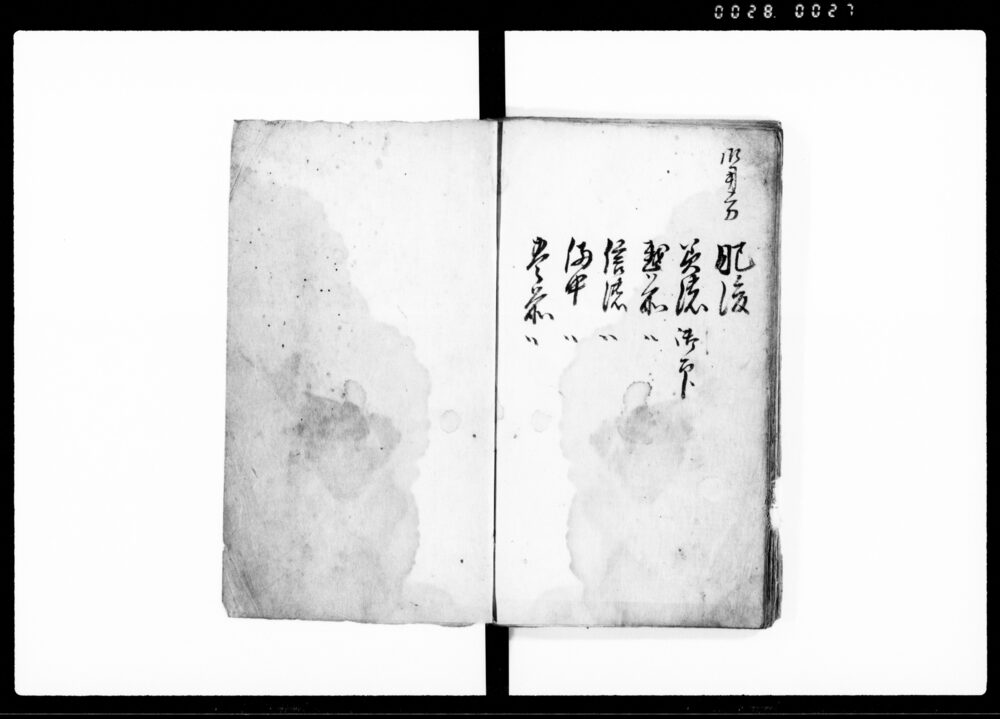 0028 0027
肥後
美濃 御印
越前 〃
信濃 〃
備中 〃
豊前 〃